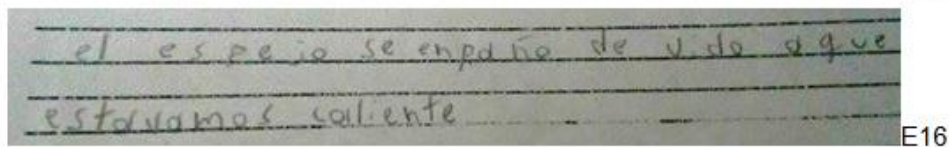 el espejo se enpaño de vido a que
estavamos caliente
E16